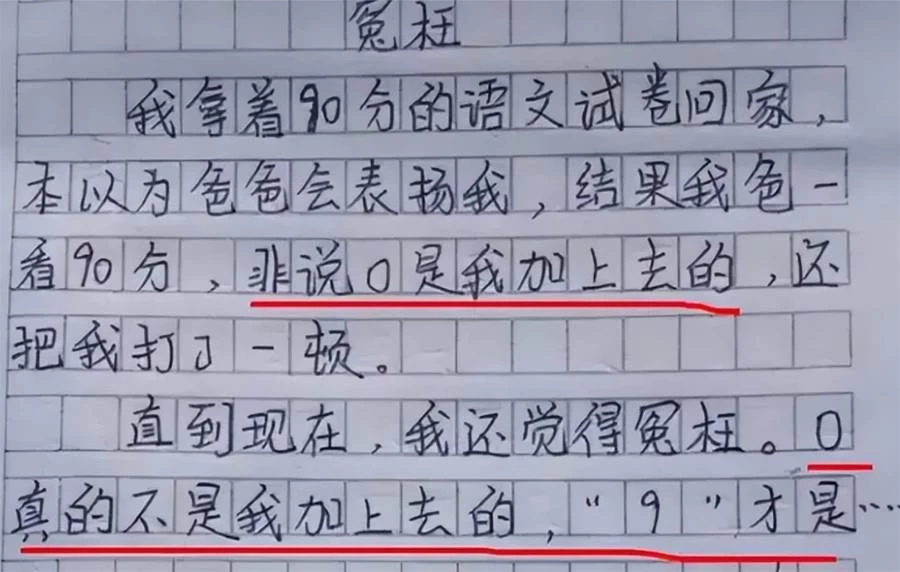 冤枉
我拿着90分的语文试卷回家，
本以为爸爸会表扬我，结果我爸一
看90分，非说0是我加上去的，还
把我打了一顿。
直到现在，我还觉得冤枉。0
真的不是我加上去的，“9”才是……